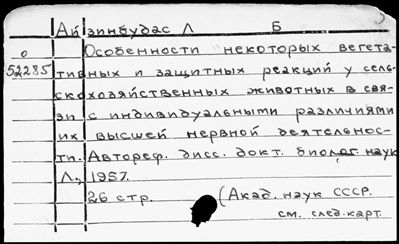 Айзинбудас Л Б
О Особенности некоторых вегета-
52285 тивных и защитных реакций у сель-
скохозяйственных животных в свя-
зи с индивидуальными различиями
их высшей нервной деятельнос-
ти. Автореф. дисс. докт. биолог. наук
Л., 1957.
26 стр. (Акад. наук СССР.
см. след. карт.